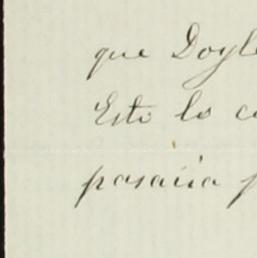 que Doyle
Esto lo
pasaría